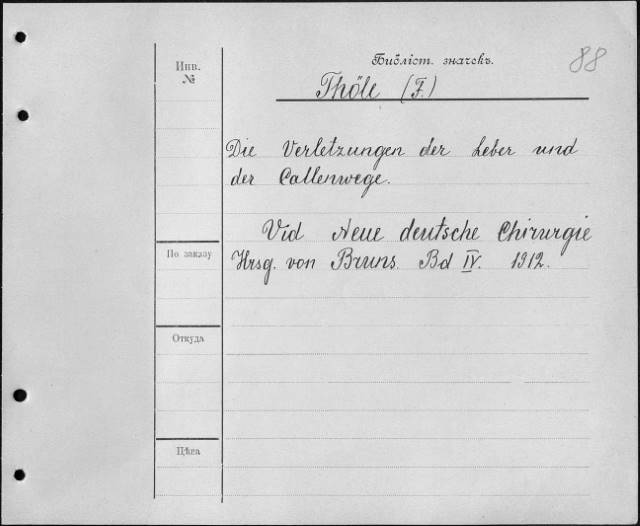 Библіот. значекъ.
88
Инв.
№
Thöle (F.)
Die Verletzungen der Leber und
der Gallenwege.
Vid Neue deutsche Chirurgie
По заказу
Hrsg. von Bruns. Bd IV. 1912.
Откуда
Цѣна